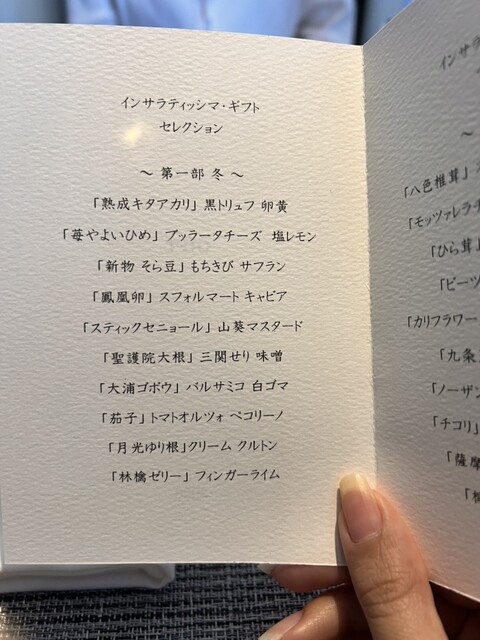 インサラティッシマ・ギフト
セレクション
～ 第一部 冬 ～
「熟成キタアカリ」 黒トリュフ 卵黄
「苺やよいひめ」 ブッラータチーズ 塩レモン
「新物 そら豆」 もちきび サフラン
「鳳凰卵」 スフォルマート キャビア
「スティックセニョール」 山葵マスタード
「聖護院大根」 三関せり 味噌
「大浦ゴボウ」 バルサミコ 白ゴマ
「茄子」 トマトオルツォ ペコリーノ
「月光ゆり根」クリーム クルトン
「林檎ゼリー」 フィンガーライム
インサラ
～
「八色椎茸」
「モッツァレラチ
「ひら茸」
「ビーツ
「カリフラワー
「九条
「ノーザン
「チコリ」
「薩摩